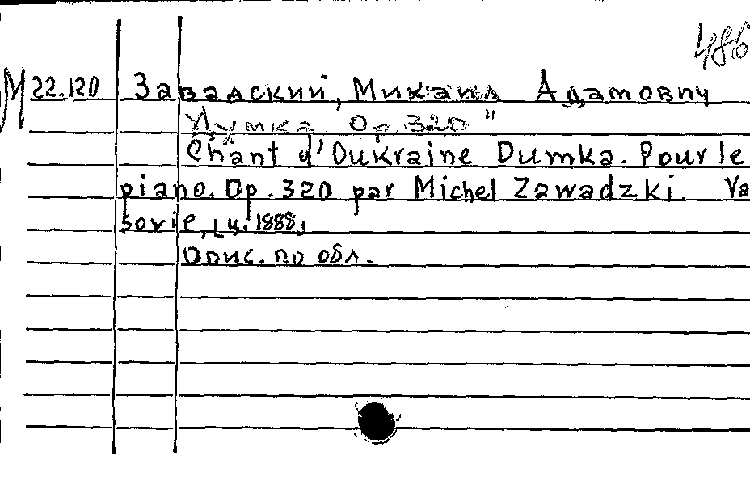 486
М 22.120 Завадский, Михаил Адамович
"Думка Op. 320"
Chant d'Oukraine Dumka. Pour le
piano. Op. 320 par Michel Zawadzki. Va
sovie, 1888,
Опис. по обл.